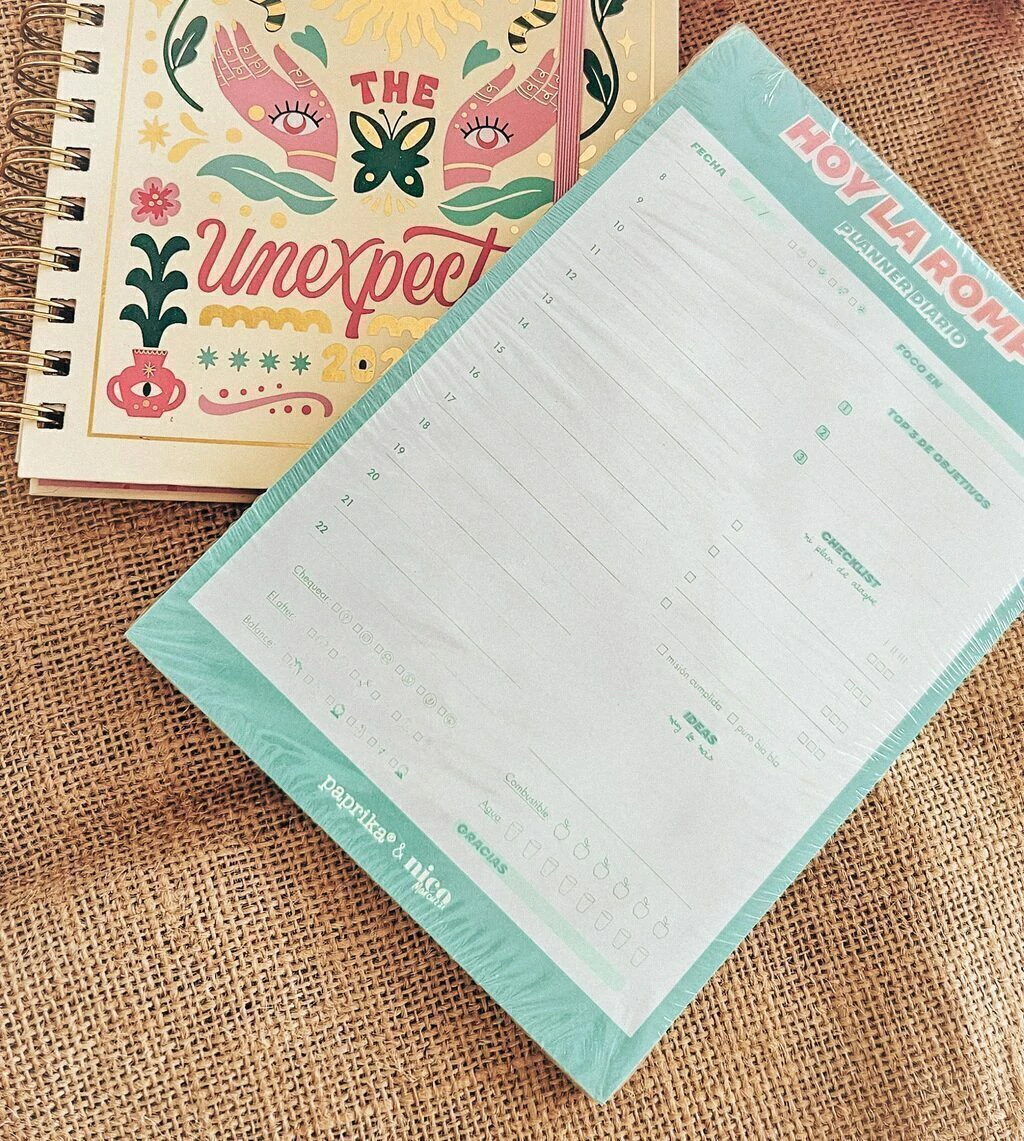 THE
Unexpect
202
HOY LA ROMP
PLANNER DIARIO
FECHA / /
8
9
10
11
12
13
14
15
16
17
18
19
20
21
22
FOCO EN
TOP 3 DE OBJETIVOS
1
2
3
CHECKLIST
mi plan de ataque
misión cumplida puro bla bla
IDEAS
Chequear:
El after:
Balance:
Combustible
Agua
GRACIAS
paprika® & nico